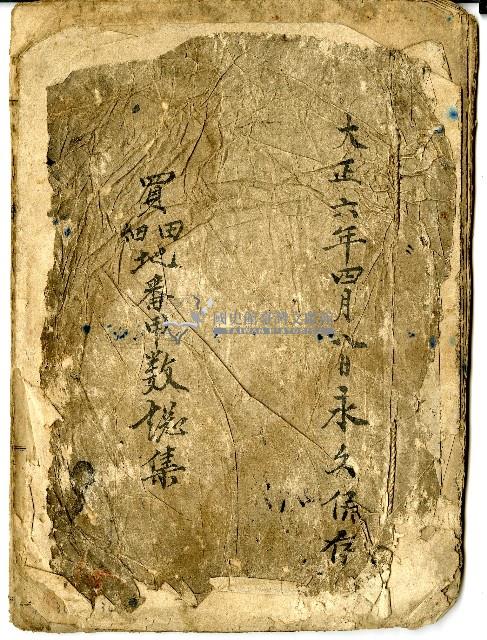 大正六年四月八日永久保存
買田畑地番甲数総集
國史館臺灣文獻館
TAIWAN HISTORICA